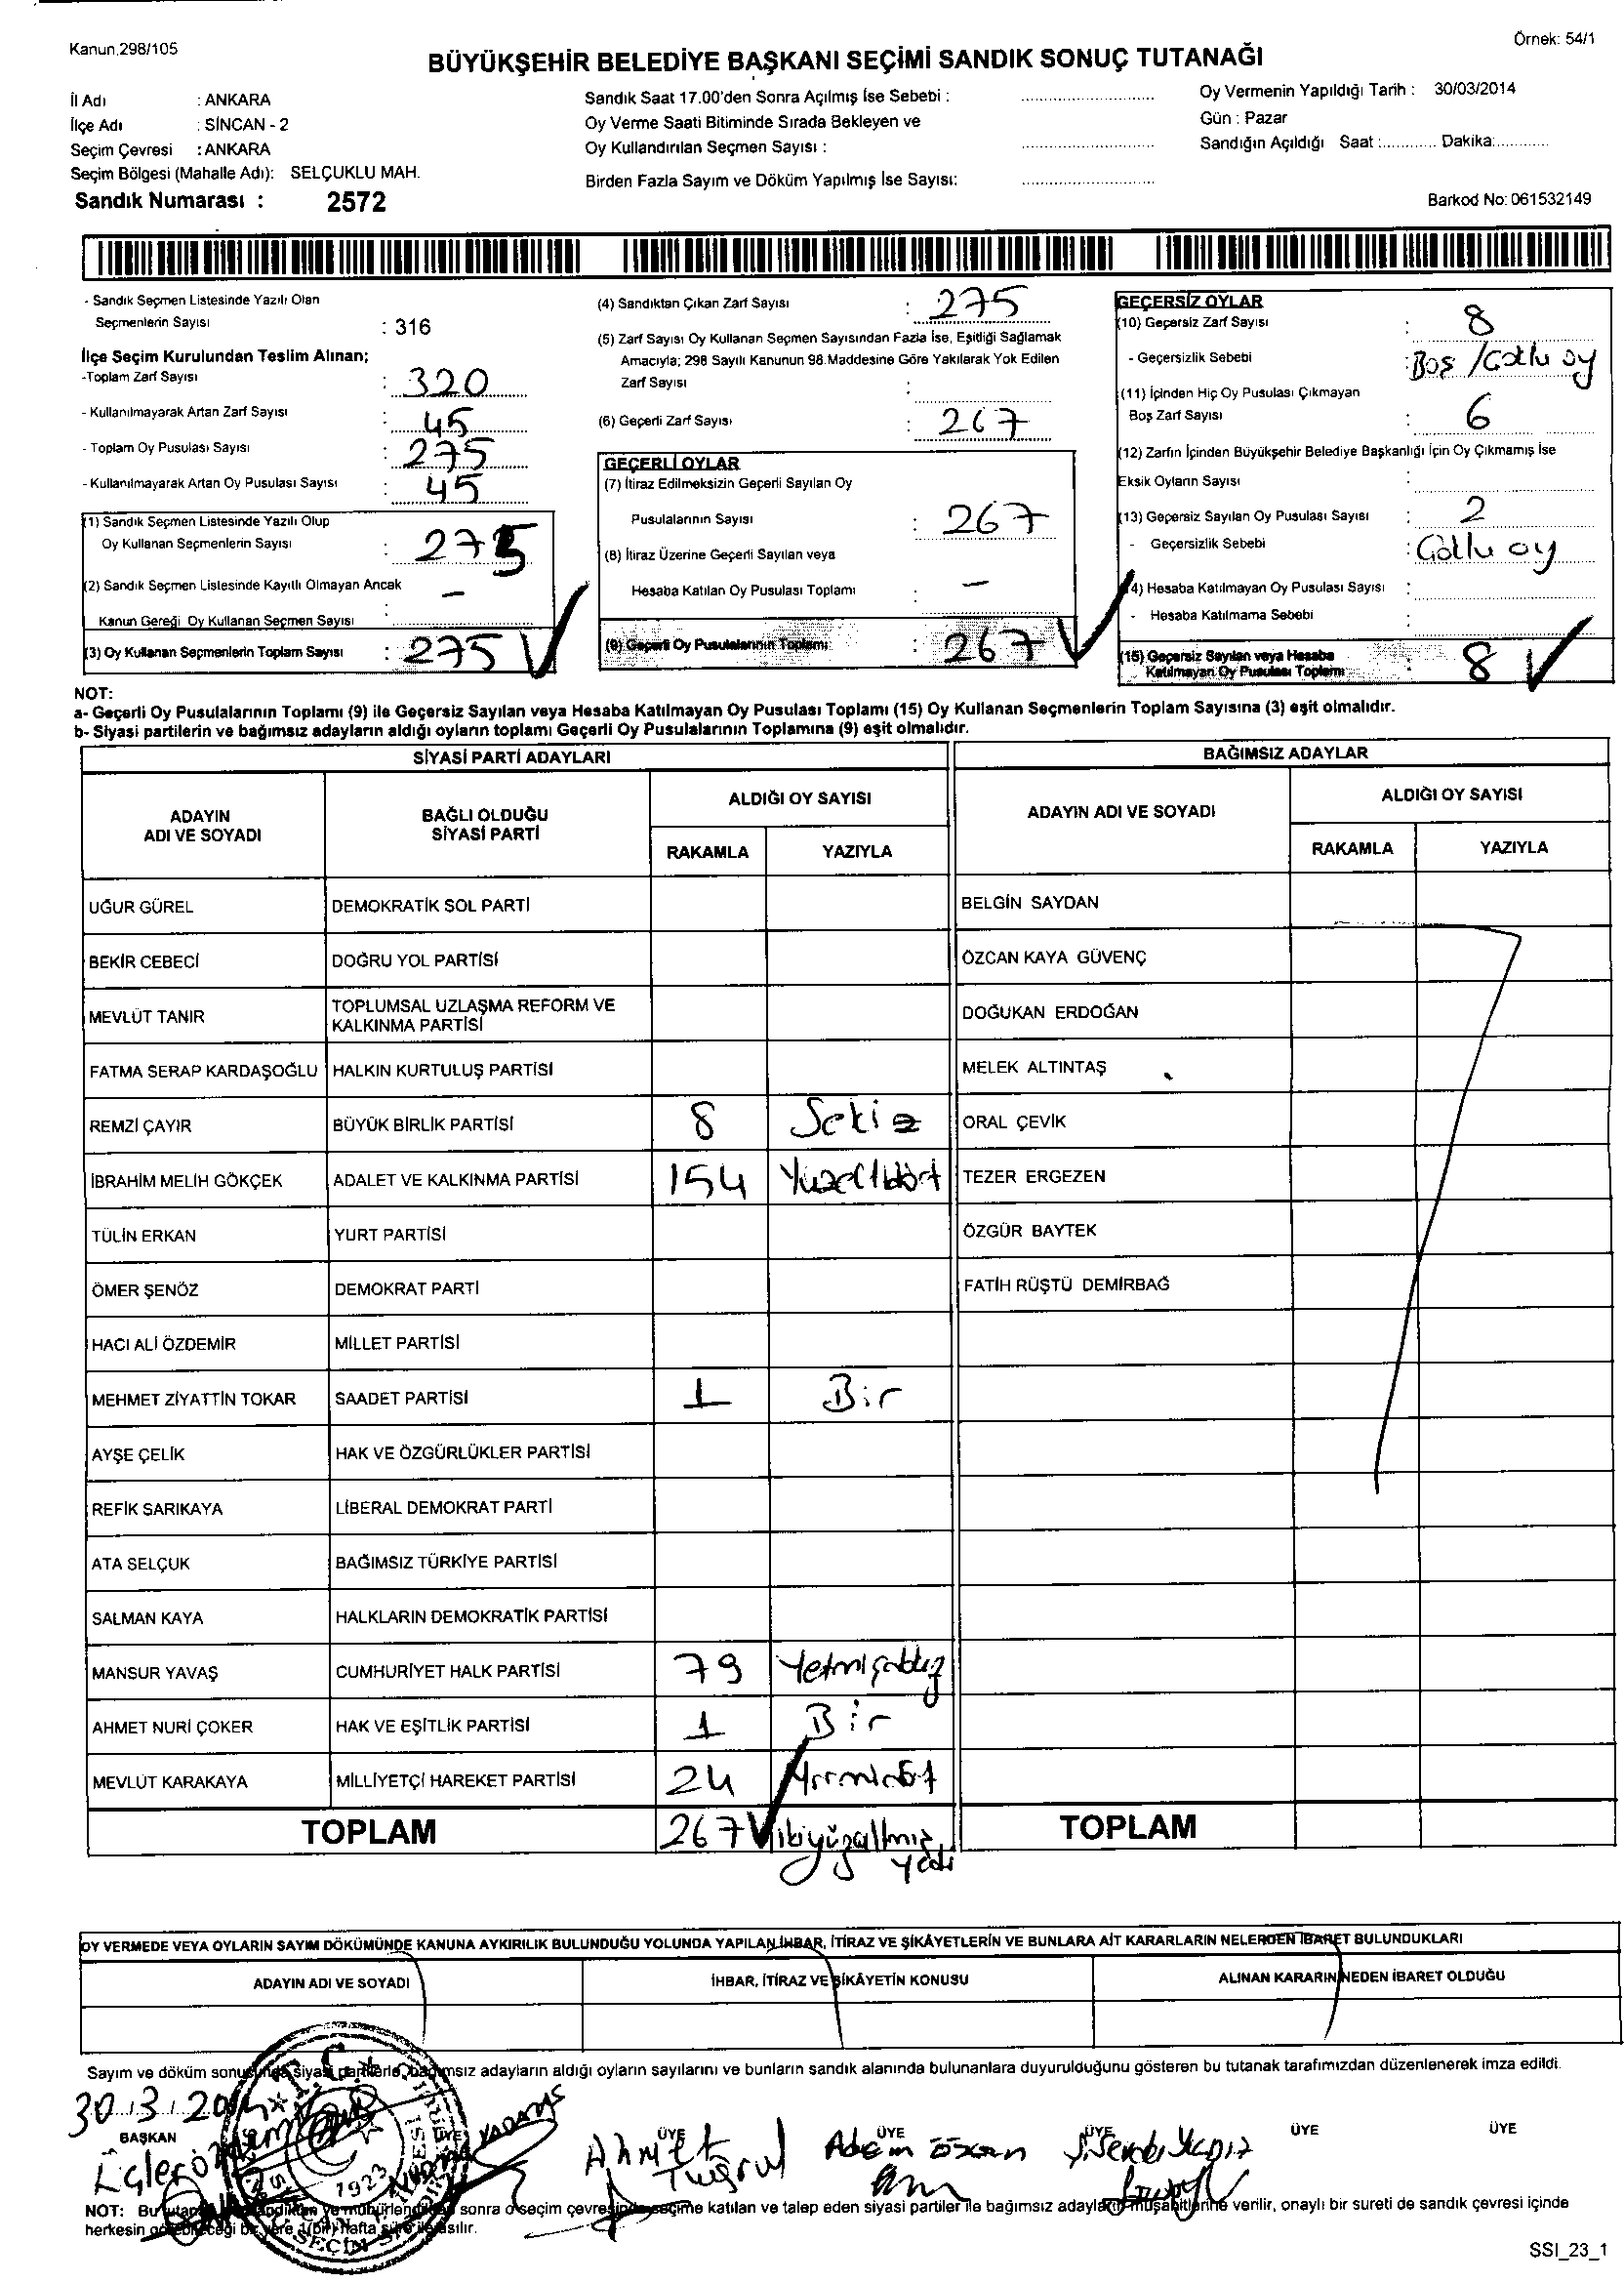 Kanun.298/105
Örnek: 54/1
BÜYÜKŞEHİR BELEDİYE BAŞKANI SEÇİMİ SANDIK SONUÇ TUTANAĞI
İl Adı : ANKARA
İlçe Adı : SİNCAN - 2
Seçim Çevresi : ANKARA
Seçim Bölgesi (Mahalle Adı): SELÇUKLU MAH.
Sandık Numarası : 2572
Sandık Saat 17.00'den Sonra Açılmış İse Sebebi :
Oy Verme Saati Bitiminde Sırada Bekleyen ve
Oy Kullandırılan Seçmen Sayısı :
Birden Fazla Sayım ve Döküm Yapılmış İse Sayısı:
Oy Vermenin Yapıldığı Tarih : 30/03/2014
Gün : Pazar
Sandığın Açıldığı Saat :............ Dakika:............
Barkod No: 061532149
- Sandık Seçmen Listesinde Yazılı Olan
Seçmenlerin Sayısı : 316
İlçe Seçim Kurulundan Teslim Alınan;
-Toplam Zarf Sayısı : 320
- Kullanılmayarak Artan Zarf Sayısı : 45
- Toplam Oy Pusulası Sayısı : 275
- Kullanılmayarak Artan Oy Pusulası Sayısı : 45
(1) Sandık Seçmen Listesinde Yazılı Olup
Oy Kullanan Seçmenlerin Sayısı : 275
(2) Sandık Seçmen Listesinde Kayıtlı Olmayan Ancak
Kanun Gereği Oy Kullanan Seçmen Sayısı : -
(3) Oy Kullanan Seçmenlerin Toplam Sayısı : 275
(4) Sandıktan Çıkan Zarf Sayısı : 275
(5) Zarf Sayısı Oy Kullanan Seçmen Sayısından Fazla İse, Eşitliği Sağlamak
Amacıyla; 298 Sayılı Kanunun 98.Maddesine Göre Yakılarak Yok Edilen
Zarf Sayısı :
(6) Geçerli Zarf Sayısı : 267
GEÇERLİ OYLAR
(7) İtiraz Edilmeksizin Geçerli Sayılan Oy
Pusulalarının Sayısı : 267
(8) İtiraz Üzerine Geçerli Sayılan veya
Hesaba Katılan Oy Pusulası Toplamı : -
(9) Geçerli Oy Pusulalarının Toplamı : 267
GEÇERSİZ OYLAR
(10) Geçersiz Zarf Sayısı : 8
- Geçersizlik Sebebi : Boş /Çoklu oy
(11) İçinden Hiç Oy Pusulası Çıkmayan
Boş Zarf Sayısı : 6
(12) Zarfın İçinden Büyükşehir Belediye Başkanlığı İçin Oy Çıkmamış İse
Eksik Oyların Sayısı :
(13) Geçersiz Sayılan Oy Pusulası Sayısı : 2
- Geçersizlik Sebebi : Çoklu oy
(14) Hesaba Katılmayan Oy Pusulası Sayısı :
- Hesaba Katılmama Sebebi :
(15) Geçersiz Sayılan veya Hesaba
Katılmayan Oy Pusulası Toplamı : 8
NOT:
a- Geçerli Oy Pusulalarının Toplamı (9) ile Geçersiz Sayılan veya Hesaba Katılmayan Oy Pusulası Toplamı (15) Oy Kullanan Seçmenlerin Toplam Sayısına (3) eşit olmalıdır.
b- Siyasi partilerin ve bağımsız adayların aldığı oyların toplamı Geçerli Oy Pusulalarının Toplamına (9) eşit olmalıdır.
SİYASİ PARTİ ADAYLARI
ADAYIN ADI VE SOYADI
BAĞLI OLDUĞU SİYASİ PARTİ
ALDIĞI OY SAYISI
RAKAMLA YAZIYLA
UĞUR GÜREL DEMOKRATİK SOL PARTİ
BEKİR CEBECİ DOĞRU YOL PARTİSİ
MEVLÜT TANIR TOPLUMSAL UZLAŞMA REFORM VE
KALKINMA PARTİSİ
FATMA SERAP KARDAŞOĞLU HALKIN KURTULUŞ PARTİSİ
REMZİ ÇAYIR BÜYÜK BİRLİK PARTİSİ 8 Sekiz
İBRAHİM MELİH GÖKÇEK ADALET VE KALKINMA PARTİSİ 154 Yüzellidört
TÜLİN ERKAN YURT PARTİSİ
ÖMER ŞENÖZ DEMOKRAT PARTİ
HACI ALİ ÖZDEMİR MİLLET PARTİSİ
MEHMET ZİYATTİN TOKAR SAADET PARTİSİ 1 Bir
AYŞE ÇELİK HAK VE ÖZGÜRLÜKLER PARTİSİ
REFİK SARIKAYA LİBERAL DEMOKRAT PARTİ
ATA SELÇUK BAĞIMSIZ TÜRKİYE PARTİSİ
SALMAN KAYA HALKLARIN DEMOKRATİK PARTİSİ
MANSUR YAVAŞ CUMHURİYET HALK PARTİSİ 79 Yetmişdokuz
AHMET NURİ ÇOKER HAK VE EŞİTLİK PARTİSİ 1 Bir
MEVLÜT KARAKAYA MİLLİYETÇİ HAREKET PARTİSİ 24 Yirmidört
TOPLAM 267 ikiyüzaltmış
yedi
BAĞIMSIZ ADAYLAR
ADAYIN ADI VE SOYADI
ALDIĞI OY SAYISI
RAKAMLA YAZIYLA
BELGİN SAYDAN
ÖZCAN KAYA GÜVENÇ
DOĞUKAN ERDOĞAN
MELEK ALTINTAŞ
ORAL ÇEVİK
TEZER ERGEZEN
ÖZGÜR BAYTEK
FATİH RÜŞTÜ DEMİRBAĞ
TOPLAM
OY VERMEDE VEYA OYLARIN SAYIM DÖKÜMÜNDE KANUNA AYKIRILIK BULUNDUĞU YOLUNDA YAPILAN İHBAR, İTİRAZ VE ŞİKÂYETLERİN VE BUNLARA AİT KARARLARIN NELERDEN İBARET BULUNDUKLARI
ADAYIN ADI VE SOYADI İHBAR, İTİRAZ VE ŞİKÂYETİN KONUSU ALINAN KARARIN NEDEN İBARET OLDUĞU
Sayım ve döküm sonucunda siyasi partilerle bağımsız adayların aldığı oyların sayılarını ve bunların sandık alanında bulunanlara duyurulduğunu gösteren bu tutanak tarafımızdan düzenlenerek imza edildi.
30.3.2014
BAŞKAN ÜYE ÜYE ÜYE ÜYE ÜYE
Ahmet Tuğrul
Adem Özcan
T.C.
1923
NOT: Bu sonra o seçim çevresinde seçime katılan ve talep eden siyasi partiler ile bağımsız adayların müşahitlerine verilir, onaylı bir sureti de sandık çevresi içinde
herkesin görebileceği bir yere 1(bir) hafta süre ile asılır.
SSI_23_1